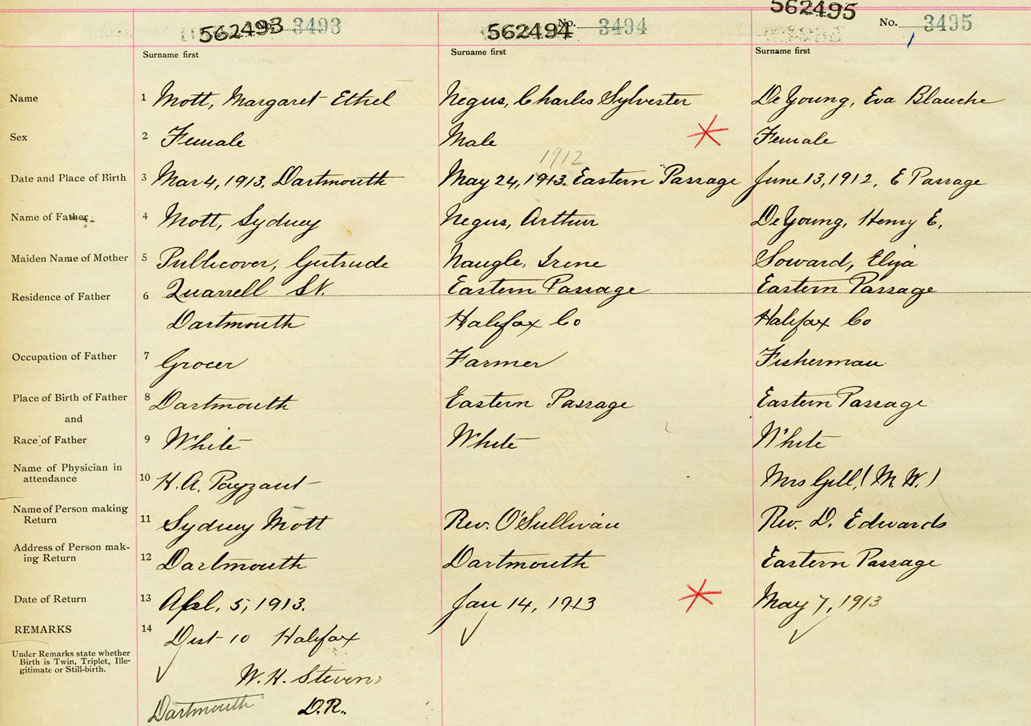 562493 No. 3493 562494 No. 3494 562495 No. 3495
Surname first Surname first Surname first
Name 1 Mott, Margaret Ethel Negus, Charles Sylvester DeYoung, Eva Blauche
Sex 2 Female Male Female
1912
Date and Place of Birth 3 Mar 4, 1913, Dartmouth May 24, 1913. Eastern Passage June 13, 1912, E Passage
Name of Father 4 Mott, Sydney Negus, Arthur DeYoung, Henry E.
Maiden Name of Mother 5 Publicover, Gertrude Naugle, Irene Soward, Eliza
Residence of Father 6 Quarrell St. Eastern Passage Eastern Passage
Dartmouth Halifax Co Halifax Co
Occupation of Father 7 Grocer Farmer Fisherman
Place of Birth of Father 8 Dartmouth Eastern Passage Eastern Passage
and
Race of Father 9 White White White
Name of Physician in
attendance 10 H.A. Payzant Mrs Gill, (M.W.)
Name of Person making
Return 11 Sydney Mott Rev. O'Sullivan Rev. D. Edwards
Address of Person mak-
ing Return 12 Dartmouth Dartmouth Eastern Passage
Date of Return 13 Apl. 5, 1913. Jan 14, 1913 May 7, 1913
REMARKS 14 Dist 10 Halifax
Under Remarks state whether
Birth is Twin, Triplet, Ille-
gitimate or Still-birth.
W.H. Stevens
Dartmouth D.R.